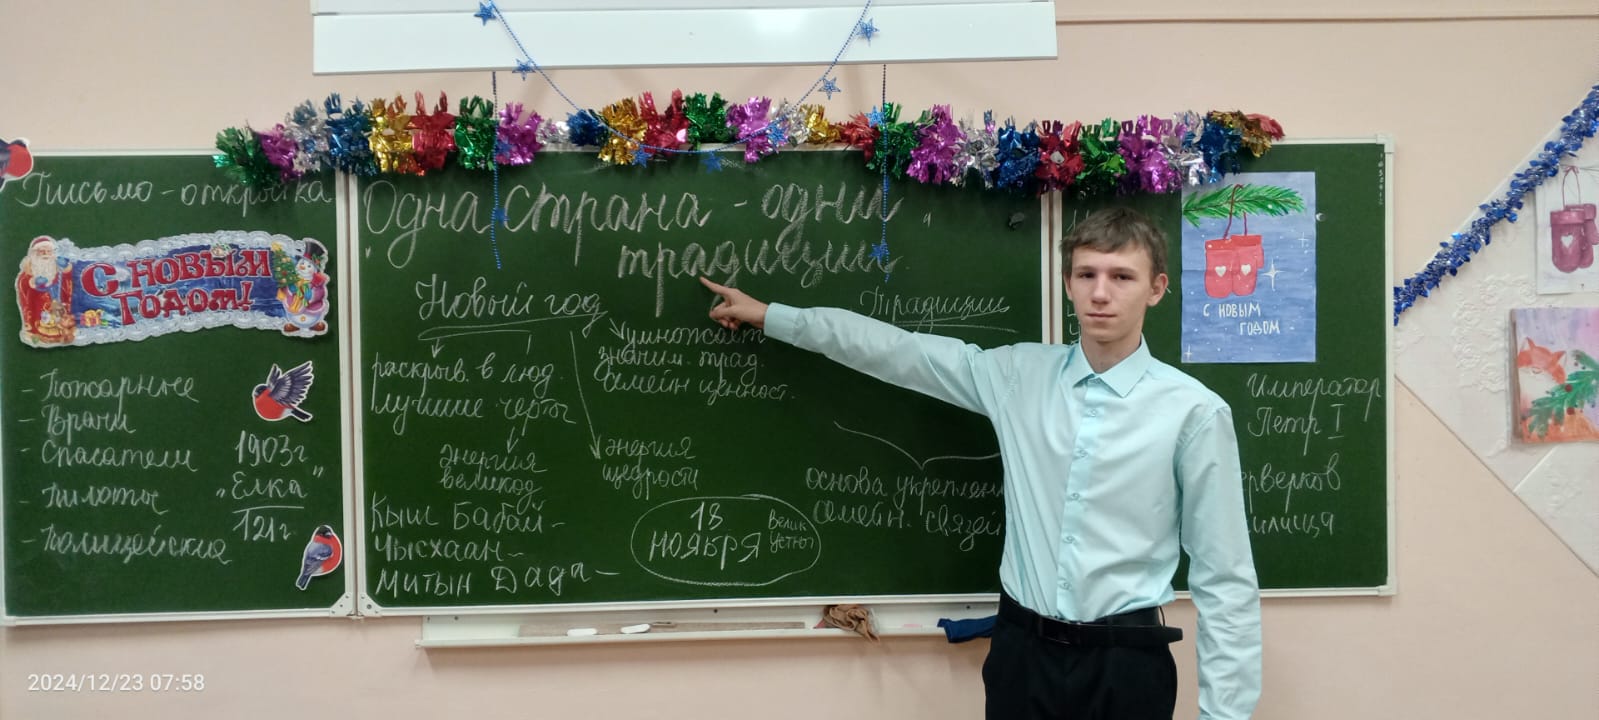 Письмо - открытка
С НОВЫМ
ГОДОМ!
- Пожарные
- Врачи
- Спасатели
- Пилоты
- Полицейские
1903г
"Ёлка"
121г
Одна страна - одни
традиции
Новый год
раскрыв. в люд.
лучшие черты
энергия
великод
умножает
значим. трад.
семейн ценност.
энергия
щедрости
Традиции
основа укреплен
семейн. связей
Кыш Бабай -
Чысхаан -
Митын Дада -
18
НОЯБРЯ
Велик
Устюг
С НОВЫМ
ГОДОМ
Император
Петр I
ерверков
илища
2024/12/23 07:58